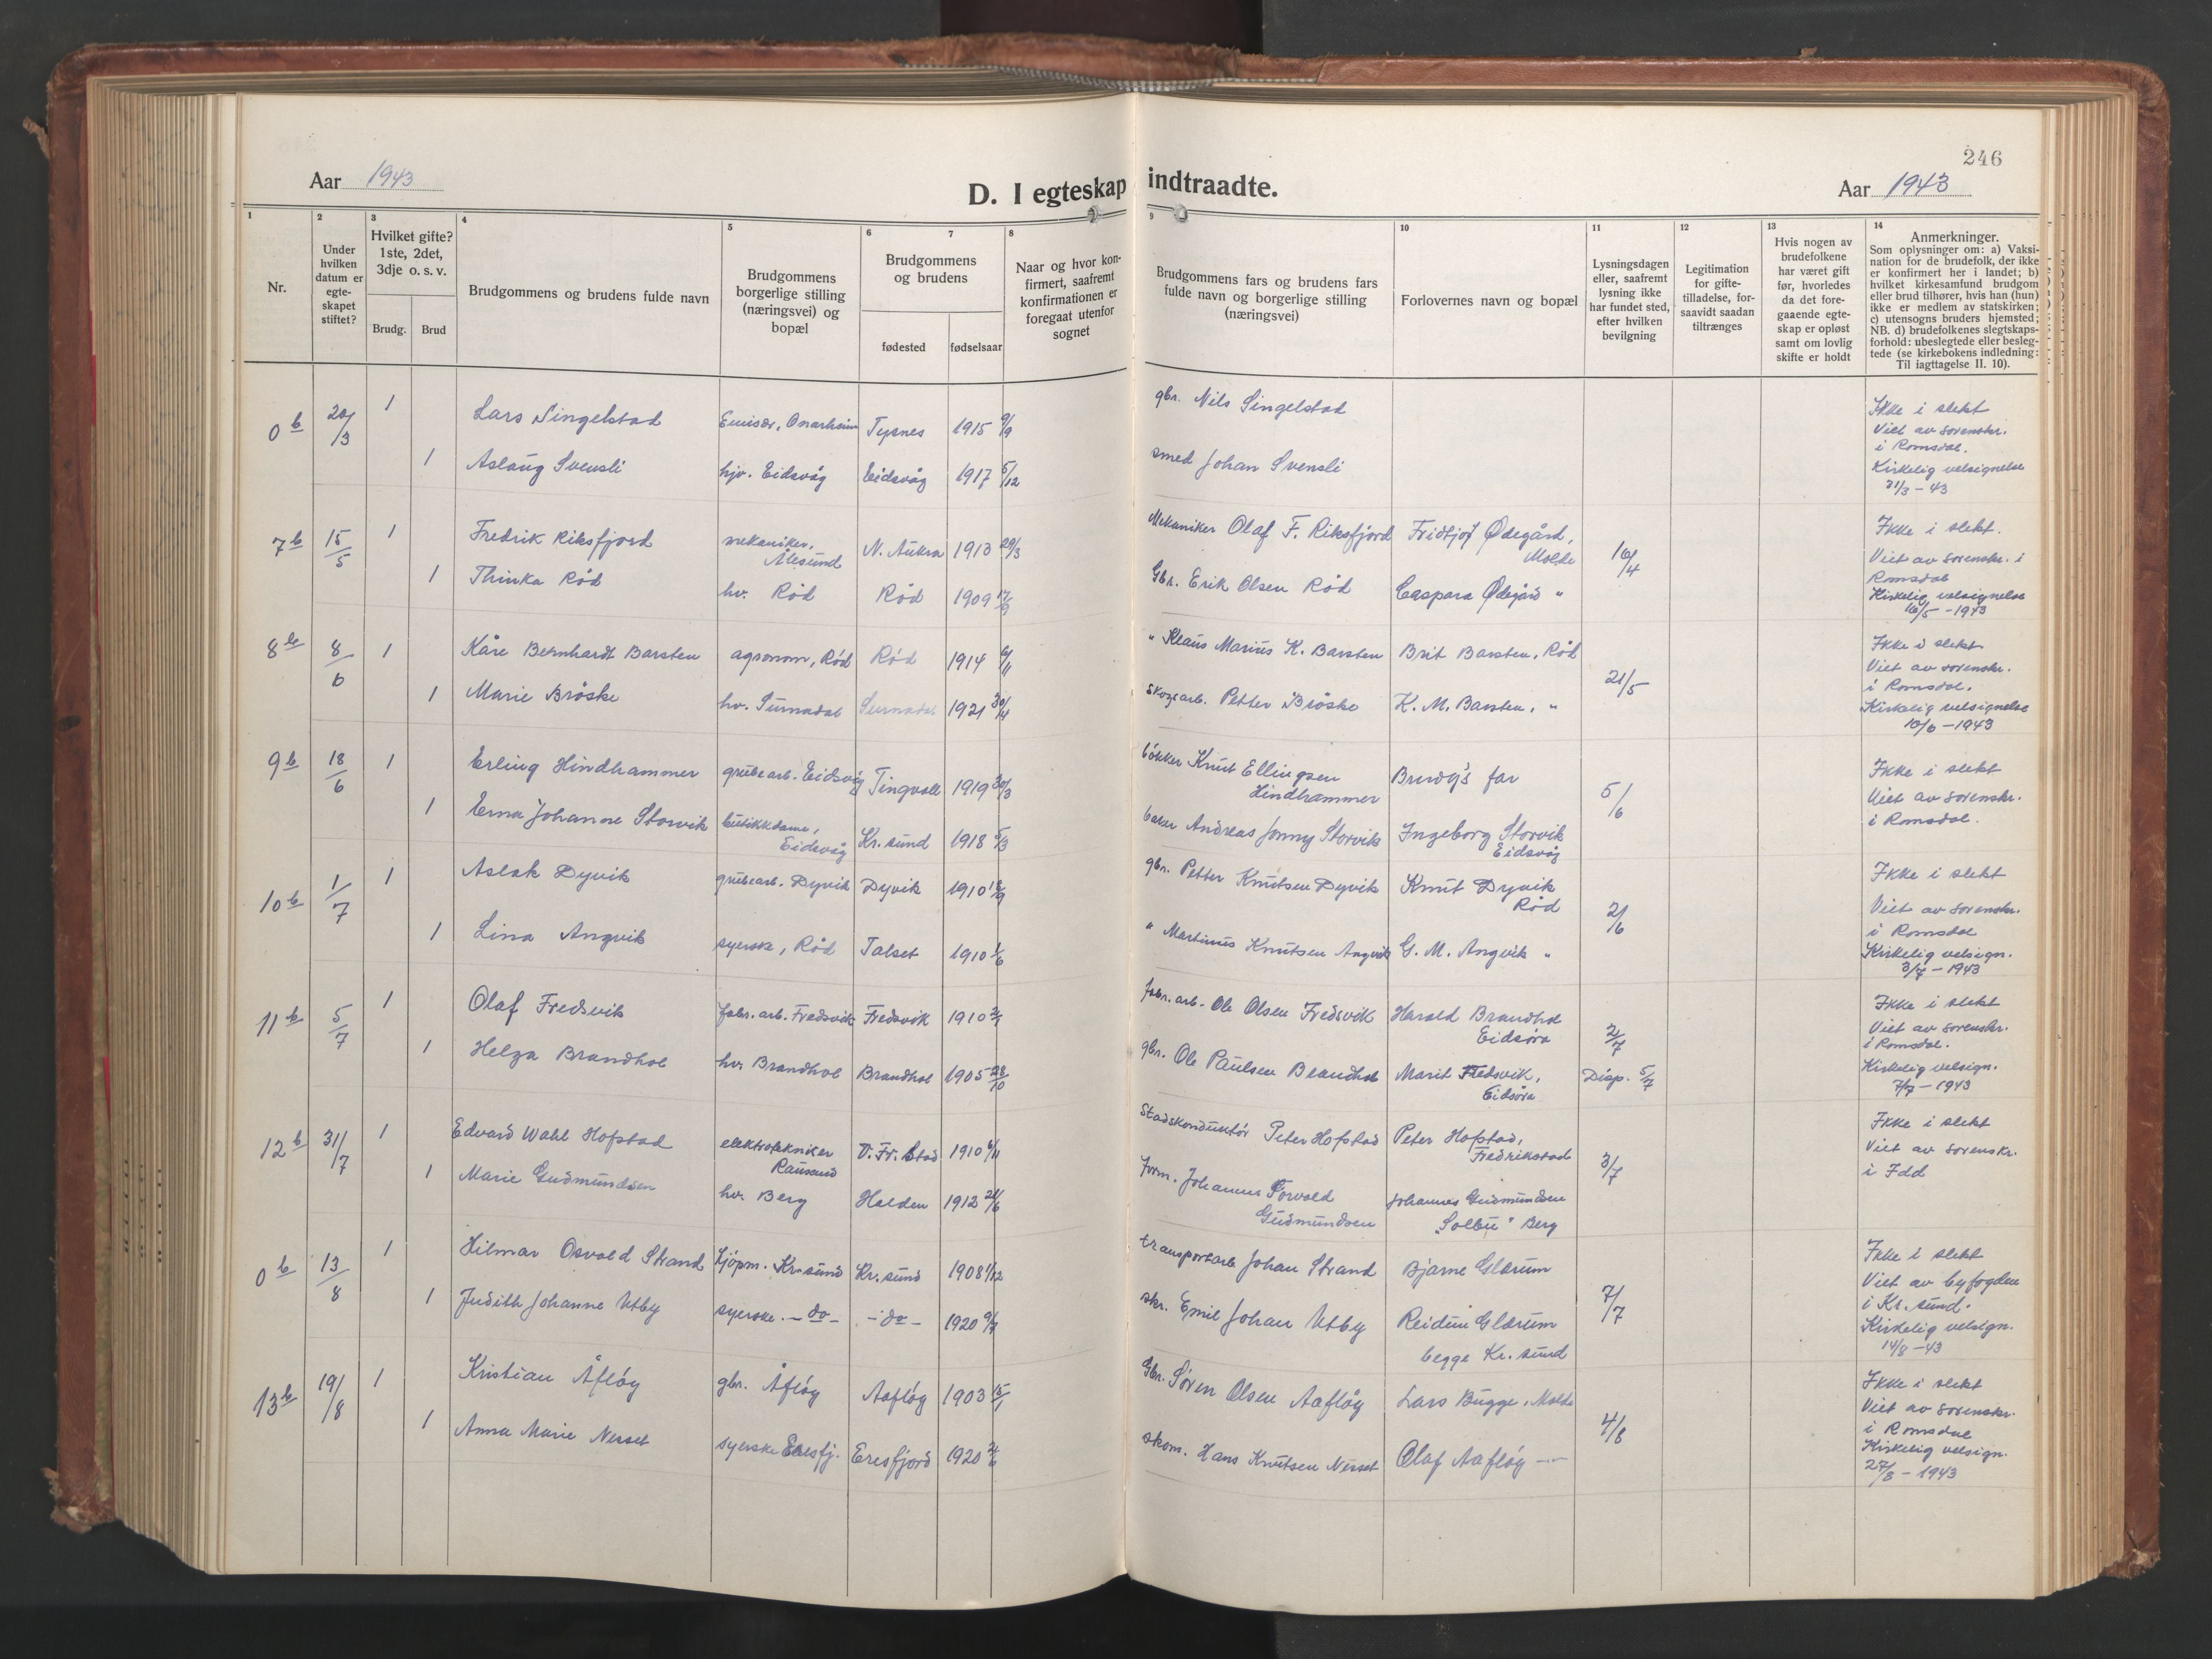 246
Aar 1943
D. I egteskap indtraadte.
Aar 1943
1
2
3
4
5
6
7
8
9
10
11
12
13
14
Nr.
Under
hvilken
datum er
egte-
skapet
stiftet?
Hvilket gifte?
1ste, 2det,
3dje o. s. v.
Brudg.
Brud
Brudgommens og brudens fulde navn
Brudgommens
borgerlige stilling
(næringsvei) og
bopæl
Brudgommens
og brudens
fødested
fødselsaar
Naar og hvor kon-
firmert, saafremt
konfirmationen er
foregaat utenfor
sognet
Brudgommens fars og brudens fars
fulde navn og borgerlige stilling
(næringsvei)
Forlovernes navn og bopæl
Lysningsdagen
eller, saafremt
lysning ikke
har fundet sted,
efter hvilken
bevilgning
Legitimation
for gifte-
tilladelse, for-
saavidt saadan
tiltrænges
Hvis nogen av
brudefolkene
har været gift
før, hvorledes
da det fore-
gaaende egte-
skap er opløst
samt om lovlig
skifte er holdt
Anmerkninger.
Som oplysninger om: a) Vaksi-
nation for de brudefolk, der ikke
er konfirmert her i landet; b)
hvilket kirkesamfund brudgom
eller brud tilhører, hvis han (hun)
ikke er medlem av statskirken;
c) utensogns bruders hjemsted;
NB. d) brudefolkenes slegtskaps-
forhold: ubeslegtede eller besleg-
tede (se kirkebokens indledning:
Til iagttagelse II. 10).
0 b 20/3 1 Lars Singelstad Emisær, Onarheim Tysnes 1915 9/9 gbr. Nils Singelstad
1 Aslaug Svensli hjv. Eidsvåg Eidsvåg 1917 5/12 smed Johan Svensli
Ikke i slekt
Viet av sorenskr.
i Romsdal.
Kirkelig velsignelse
31/3 - 43
7 b 15/5 1 Fredrik Riksfjord mekaniker, Ålesund N. Aukra 1913 29/3 Mekaniker Olaf F. Riksfjord Fridtjof Ødegård, Molde 16/4
1 Thinka Rød hv. Rød Rød 1909 17/9 Gbr. Erik Olsen Rød Caspara Ødegård "
Ikke i slekt.
Viet av sorenskr. i
Romsdal
Kirkelig velsignelse
16/5 - 1943
8 b 8/6 1 Kåre Bernhardt Barsten agronom, Rød Rød 1914 6/11 " Klaus Marius K. Barsten Brit Barsten, Rød 21/5
1 Marie Brøske hv. Surnadal Surnadal 1921 30/4 skogsarb. Petter Brøske K. M. Barsten, "
Ikke i slekt
Viet av sorenskr.
i Romsdal.
Kirkelig velsignelse
10/6 - 1943
9 b 18/6 1 Erling Hindhammer grubearb. Eidsvåg Tingvoll 1919 30/3 bøkker Knut Ellingsen Hindhammer Brudg's far 5/6
1 Erna Johanne Storvik butikkdame, Eidsvåg Kr.sund 1918 5/3 baker Andreas Jonny Storvik Ingeborg Storvik Eidsvåg
Ikke i slekt
Viet av sorenskr.
i Romsdal.
10 b 1/7 1 Aslak Dyvik grubearb. Dyvik Dyvik 1910 18/9 gbr. Petter Knutsen Dyvik Knut Dyvik Rød 2/6
1 Lina Angvik syerske, Rød Talset 1910 1/6 " Martinus Knutsen Angvik G. M. Angvik "
Ikke i slekt
Viet av sorenskr.
i Romsdal
Kirkelig velsign.
3/7 - 1943
11 b 5/7 1 Olaf Fredsvik fabr. arb. Fredsvik Fredsvik 1910 fabr. arb. Ole Olsen Fredsvik Harald Brandhol Eidsøra 2/7
1 Helga Brandhol hv. Brandhol Brandhol 1905 28/10 gbr. Ole Paulsen Brandhol Marit Fredsvik, Eidsøra Disp. 5/7
Ikke i slekt
Viet av sorenskr.
i Romsdal.
Kirkelig velsign.
7/7 - 1943
12 b 31/7 1 Edvard Wahl Hofstad elektrotekniker Rausand V. Fr. Stad 1910 6/11 Stadskonduktør Peter Hofstad Peter Hofstad, Fredrikstad 3/7
1 Marie Gudmundsen hv. Berg Halden 1912 21/6 form. Johannes Torvald Gudmundsen Johannes Gudmundsen "Solbu" Berg
Ikke i slekt
Viet av sorenskr.
i Idd
0 b 13/8 1 Hilmar Osvald Strand kjøpm. Kr.sund Kr.sund 1908 1/12 transportarb Johan Strand Bjarne Glærum 7/7
1 Judith Johanne Utby syerske. - do - - do - 1920 9/7 skr. Emil Johan Utby Reidun Glærum
begge Kr. sund
Ikke i slekt
Viet av byfogden
i Kr. sund.
Kirkelig velsign.
14/8 - 43
13 b 19/8 1 Kristian Åfløy gbr. Åfløy Aafløy 1903 15/1 Gbr. Søren Olsen Aafløy Lars Bugge, Molde 4/8
1 Anna Marie Nesset syerske Eresfj. Eresfjord 1920 2/6 skom. Hans Knutsen Nesset Olaf Aafløy —
Ikke i slekt
Viet av sorenskr.
i Romsdal
Kirkelig velsign.
27/8 - 1943